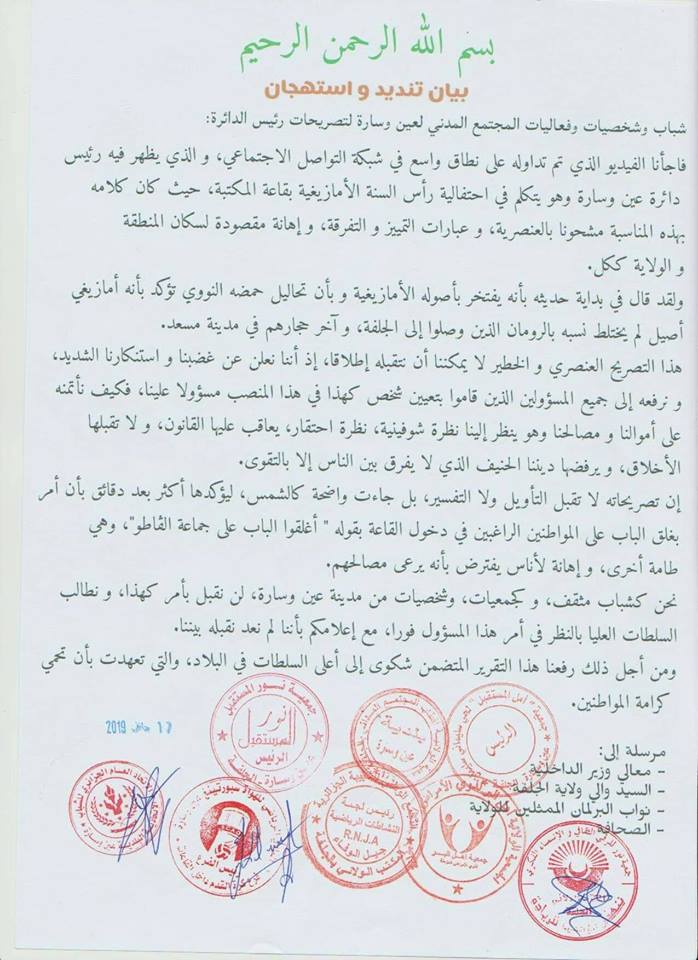 بسم الله الرحمن الرحيم
بيان تنديد و استهجان
شباب وشخصيات وفعاليات المجتمع المدني لعين وسارة لتصريحات رئيس الدائرة:
فاجأنا الفيديو الذي تم تداوله على نطاق واسع في شبكة التواصل الاجتماعي، و الذي يظهر فيه رئيس
دائرة عين وسارة وهو يتكلم في احتفالية رأس السنة الأمازيغية بقاعة المكتبة، حيث كان كلامه
بهذه المناسبة مشحونا بالعنصرية، و عبارات التمييز و التفرقة، و إهانة مقصودة لسكان المنطقة
و الولاية ككل.
ولقد قال في بداية حديثه بأنه يفتخر بأصوله الأمازيغية و بأن تحاليل حمضه النووي تؤكد بأنه أمازيغي
أصيل لم يختلط نسبه بالرومان الذين وصلوا إلى الجلفة، و آخر حجارهم في مدينة مسعد.
هذا التصريح العنصري و الخطير لا يمكننا أن نتقبله إطلاقا، إذ أننا نعلن عن غضبنا و استنكارنا الشديد،
و نرفعه إلى جميع المسؤولين الذين قاموا بتعيين شخص كهذا في هذا المنصب مسؤولا علينا، فكيف نأتمنه
على أموالنا و مصالحنا وهو ينظر إلينا نظرة شوفينية، نظرة احتقار، يعاقب عليها القانون، و لا تقبلها
الأخلاق، و يرفضها ديننا الحنيف الذي لا يفرق بين الناس إلا بالتقوى.
إن تصريحاته لا تقبل التأويل ولا التفسير، بل جاءت واضحة كالشمس، ليؤكدها أكثر بعد دقائق بأن أمر
بغلق الباب على المواطنين الراغبين في دخول القاعة بقوله " أغلقوا الباب على جماعة الڤاطو"، وهي
طامة أخرى، و إهانة لأناس يفترض بأنه يرعى مصالحهم.
نحن كشباب مثقف، و كجمعيات، وشخصيات من مدينة عين وسارة، لن نقبل بأمر كهذا، و نطالب
السلطات العليا بالنظر في أمر هذا المسؤول فورا، مع إعلامكم بأننا لم نعد نقبله بيننا.
ومن أجل ذلك رفعنا هذا التقرير المتضمن شكوى إلى أعلى السلطات في البلاد، والتي تعهدت بأن تحمي
كرامة المواطنين.
مرسلة إلى:
– معالي وزير الداخلية
– السيد والي ولاية الجلفة
– نواب البرلمان الممثلين للولاية
– الصحافة
2019
جمعية نور المستقبل
نور
المستقبل
الرئيس
عين وسارة
الرئيس
رئيس لجنة
النشاطات الرياضية
R.N.J.A
جيل الوفاء
المكتب الولائي بالجلفة